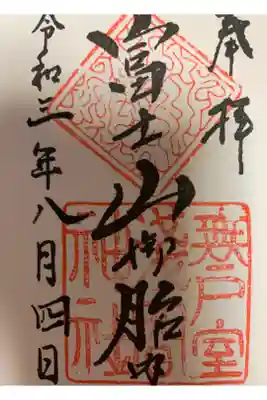 奉拝
富士山御胎内
令和三年八月四日
無戸室
神社